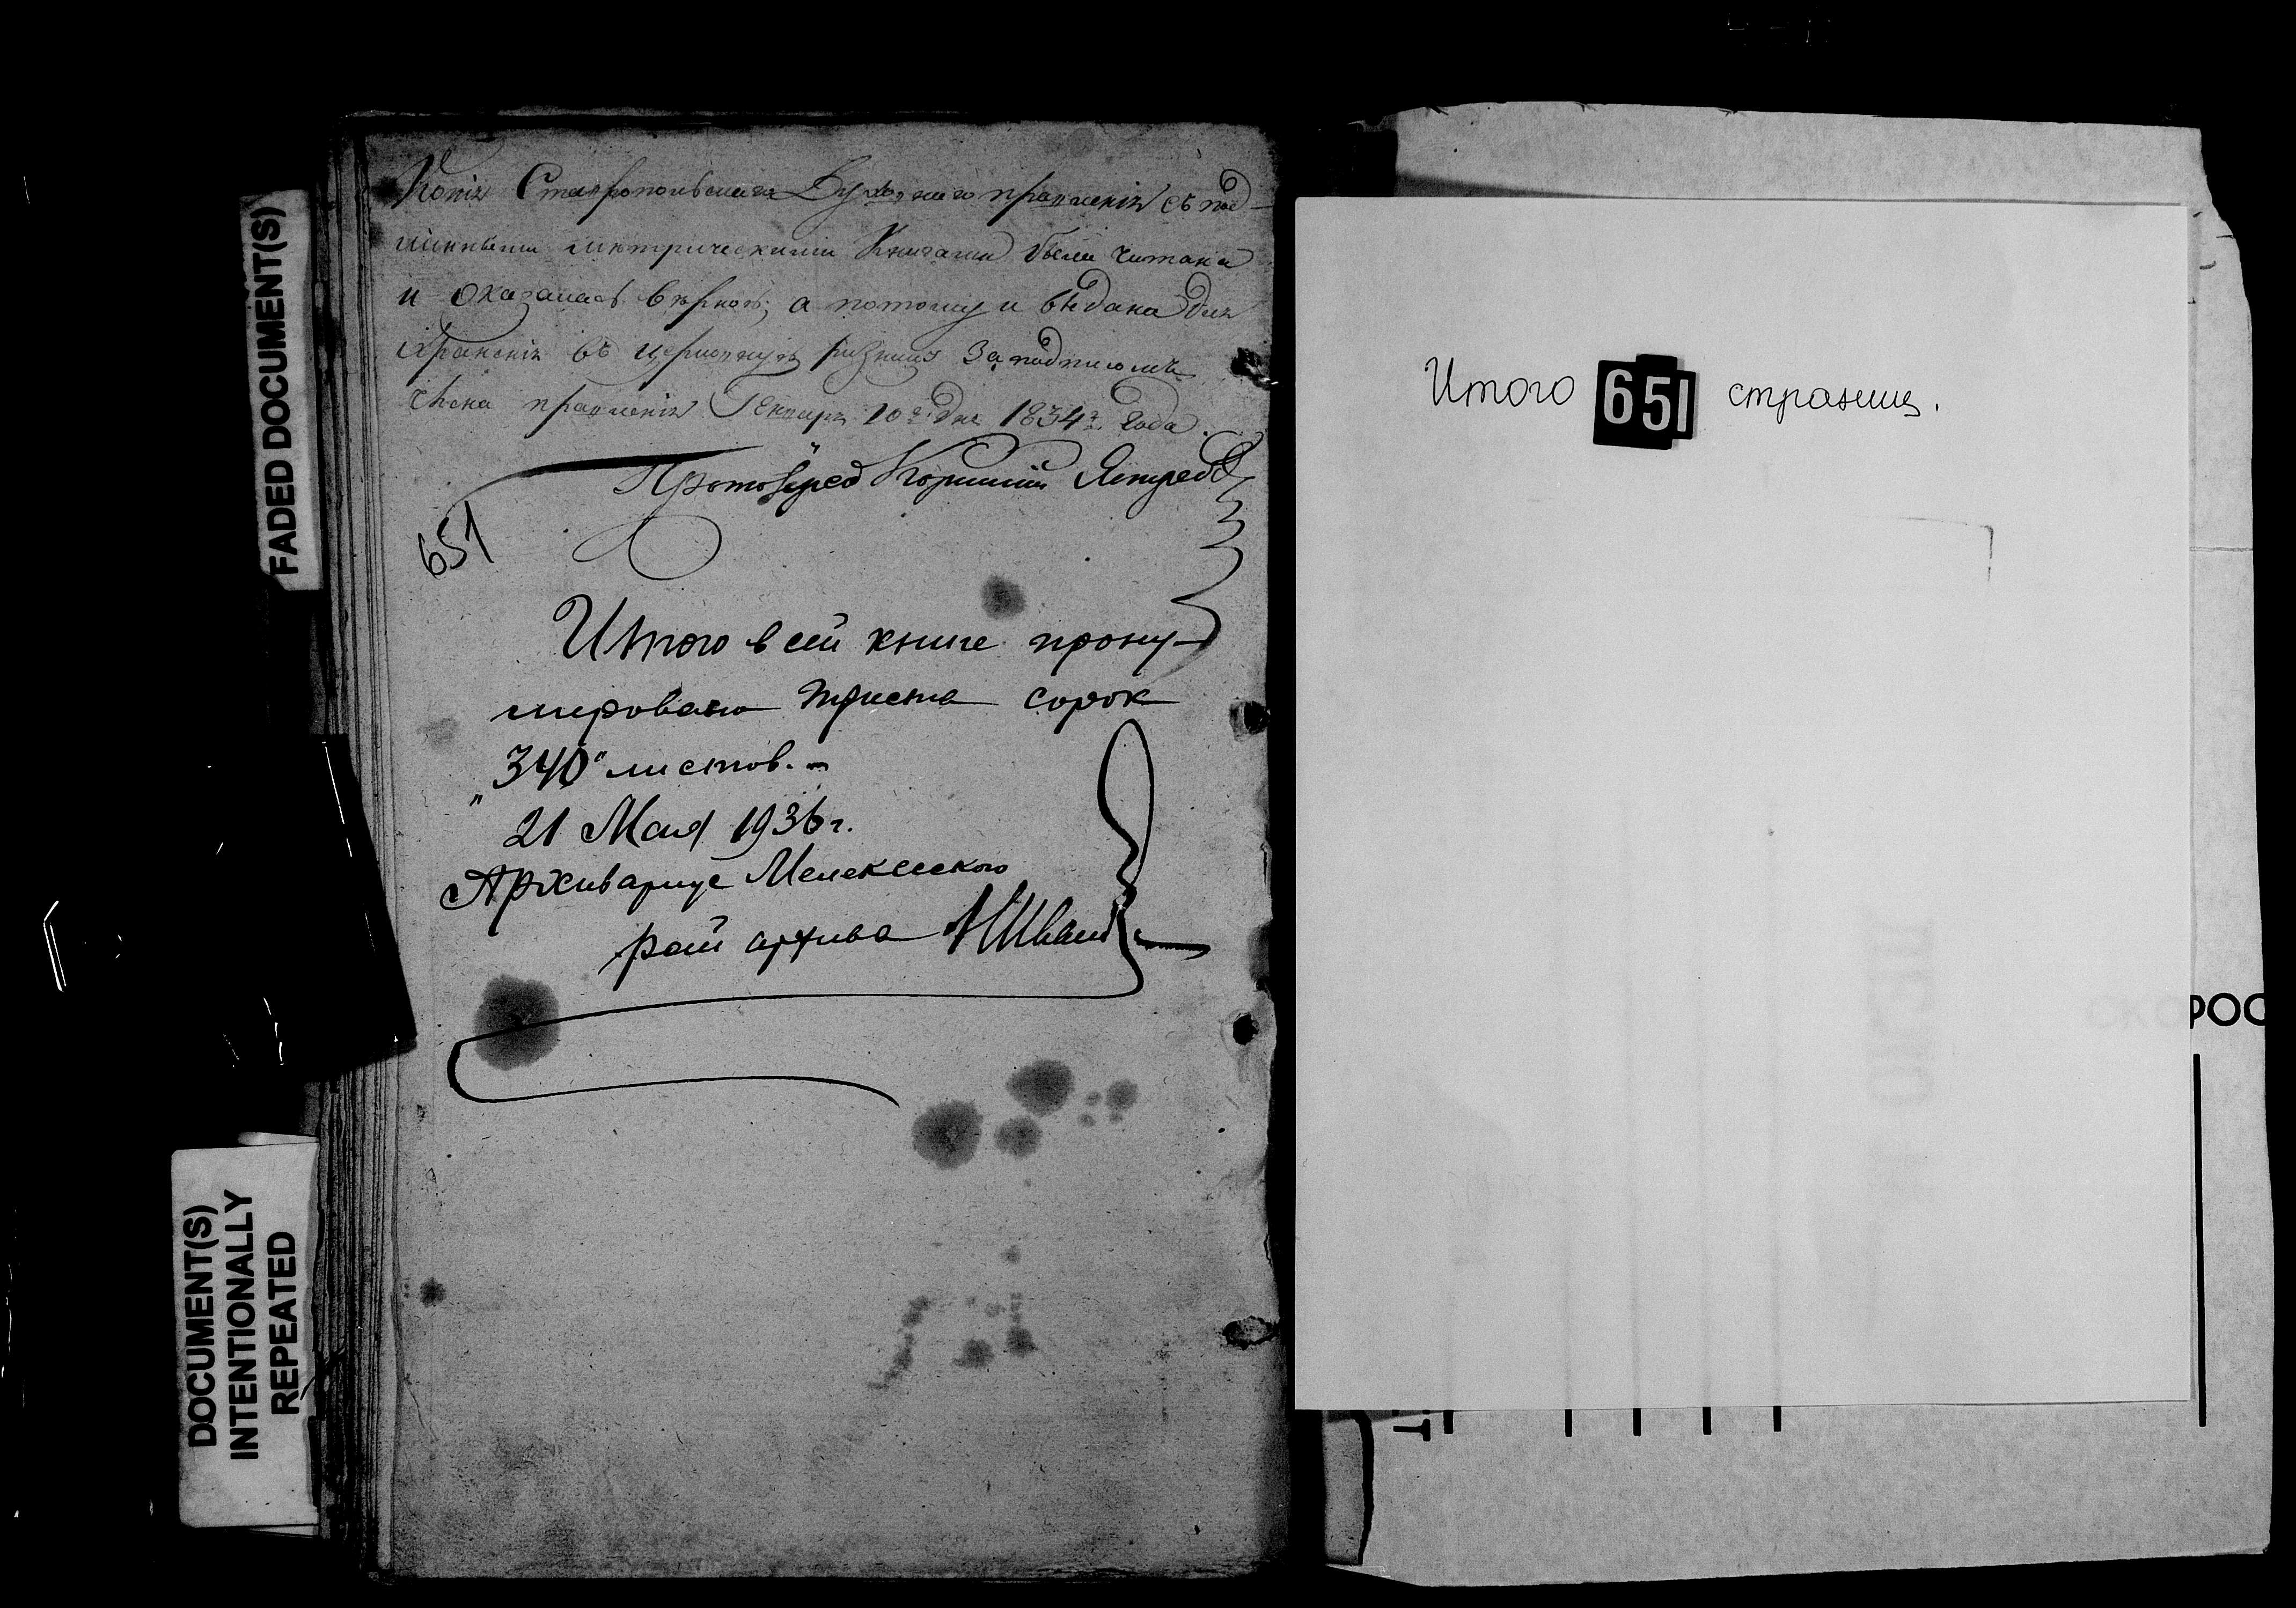 FADED DOCUMENT(S)
Копія Ставропольскаго Духовнаго правленія съ под-
линными метрическими Книгами была читана
и оказалась вѣрною; а потому и выдана для
Храненія въ церковную ризницу за подписомъ
Члена правленія Генваря 10го дня 1834го года.
Протоіерей
651
Итого в сей книге прону-
мировано триста сорок
"340" листов.-
21 Мая 1936 г.
Архивариус Мелекесского
рай архива
DOCUMENT(S)
INTENTIONALLY
REPEATED
Итого 651 страниц.
РОС